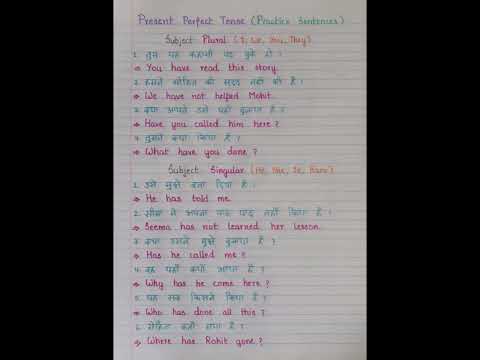 Present Perfect Tense (Practice Sentences)
Subject: Plural (I, We, You, They)
1. तुम यह कहानी पढ़ चुके हो।
⇒ You have read this story.
2. हमने मोहित की मदद नहीं की है।
⇒ We have not helped Mohit.
3. क्या आपने उसे यहाँ बुलाया है?
⇒ Have you called him here?
4. तुमने क्या किया है?
⇒ What have you done?
Subject: Singular (He, She, It, Name)
1. उसने मुझे बता दिया है।
⇒ He has told me.
2. सीमा ने अपना पाठ याद नहीं किया है।
⇒ Seema has not learned her lesson.
3. क्या उसने मुझे बुलाया है?
⇒ Has he called me?
4. वह यहाँ क्यों आया है?
⇒ Why has he come here?
5. यह सब किसने किया है?
⇒ Who has done all this?
6. रोहित कहाँ गया है?
⇒ Where has Rohit gone?